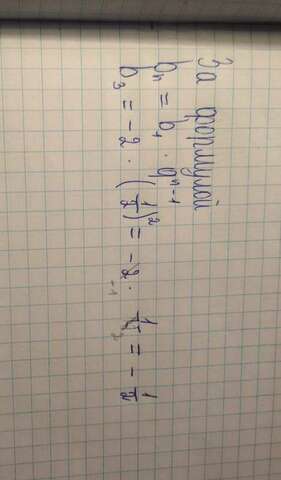 За формулой
bₙ = b₁ · qⁿ⁻¹
b₃ = -2 · (1/2)² = -2 · 1/4 = - 1/2